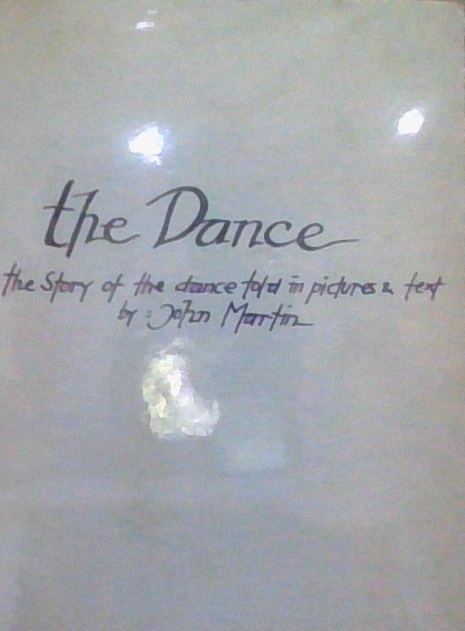 the Dance
the Story of the dance told in pictures & text
by: John Martin